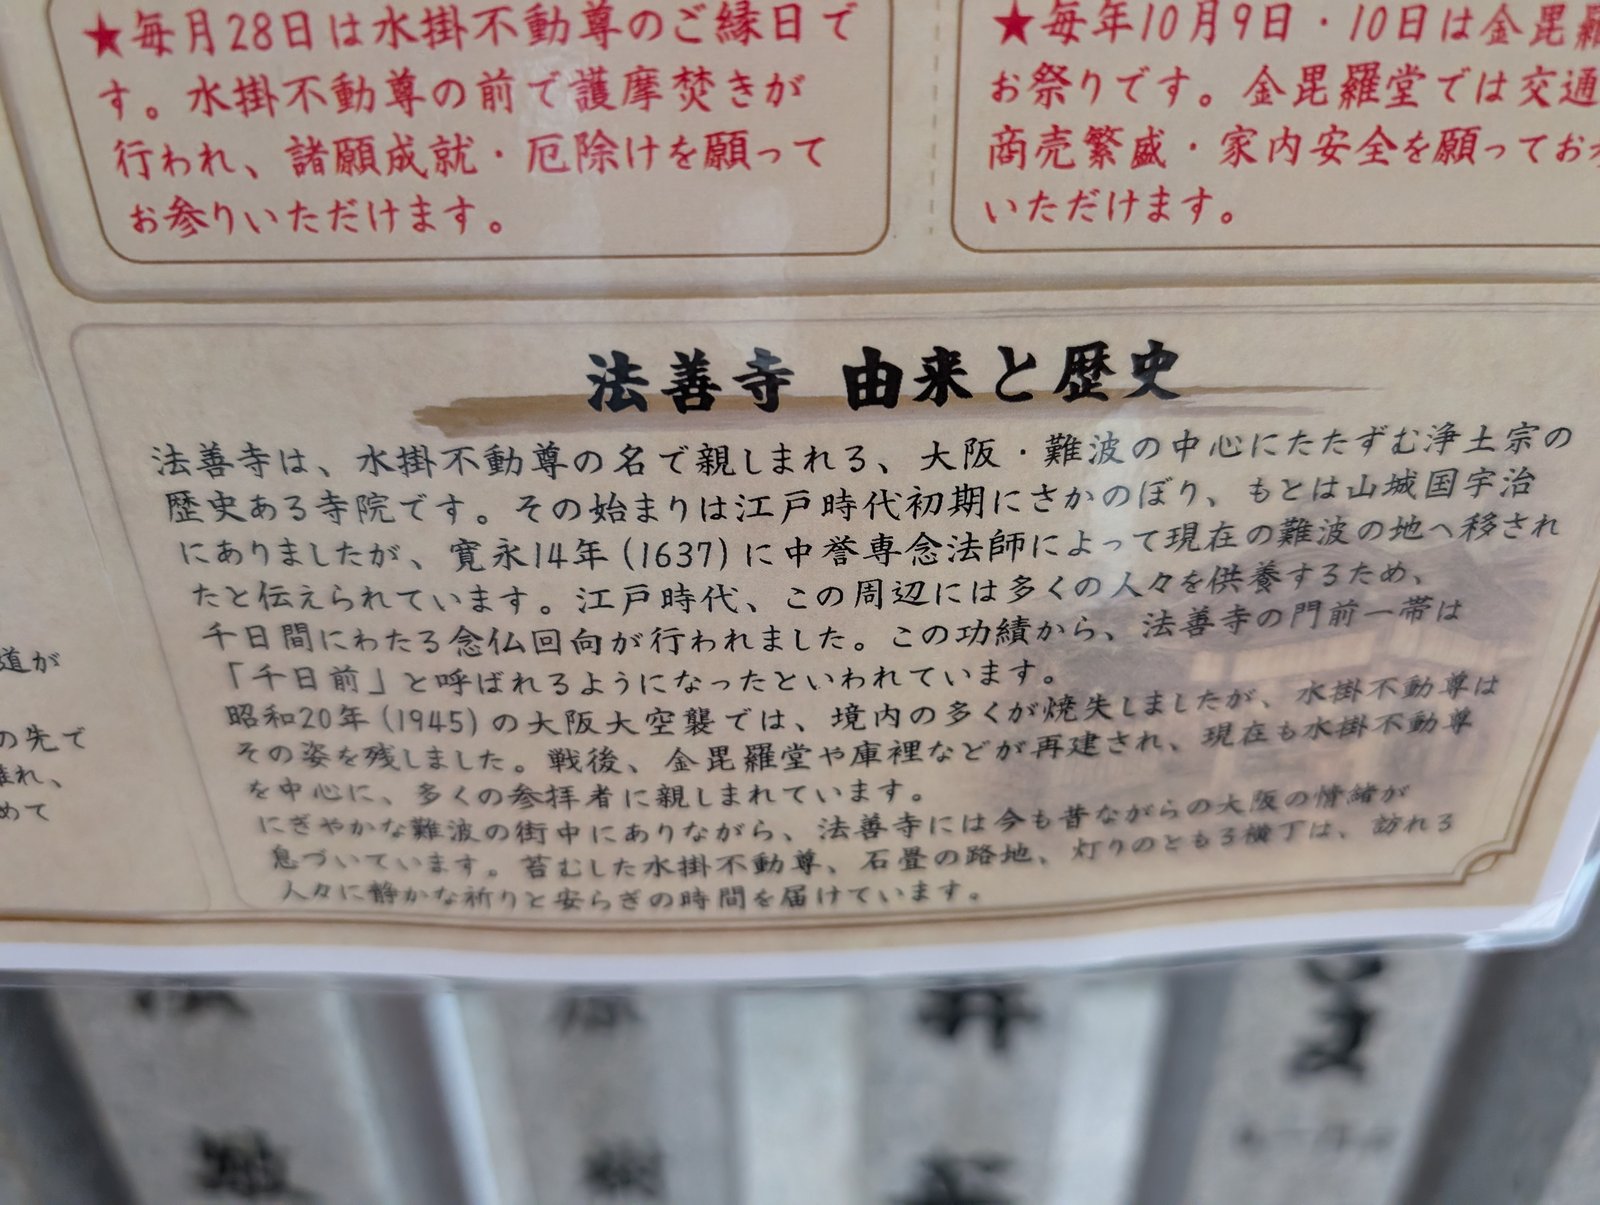 ★毎月28日は水掛不動尊のご縁日で
す。水掛不動尊の前で護摩焚きが
行われ、諸願成就・厄除けを願って
お参りいただけます。
★毎年10月9日・10日は金毘羅
お祭りです。金毘羅堂では交通
商売繁盛・家内安全を願ってお
いただけます。
法善寺 由来と歴史
法善寺は、水掛不動尊の名で親しまれる、大阪・難波の中心にたたずむ浄土宗の
歴史ある寺院です。その始まりは江戸時代初期にさかのぼり、もとは山城国宇治
にありましたが、寛永14年(1637)に中誉専念法師によって現在の難波の地へ移され
たと伝えられています。江戸時代、この周辺には多くの人々を供養するため、
千日間にわたる念仏回向が行われました。この功績から、法善寺の門前一帯は
「千日前」と呼ばれるようになったといわれています。
昭和20年(1945)の大阪大空襲では、境内の多くが焼失しましたが、水掛不動尊は
その姿を残しました。戦後、金毘羅堂や庫裡などが再建され、現在も水掛不動尊
を中心に、多くの参拝者に親しまれています。
にぎやかな難波の街中にありながら、法善寺には今も昔ながらの大阪の情緒が
息づいています。苔むした水掛不動尊、石畳の路地、灯りのともる横丁は、訪れる
人々に静かな祈りと安らぎの時間を届けています。
道が
の先で
れ、
めて